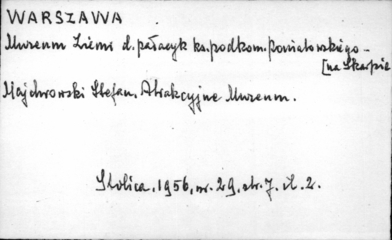 WARSZAWA
Muzeum Ziemi d. pałacyk ks. podkom. Poniatowskiego -
[na Skarpie
Majchrowski Stefan. Atrakcyjne Muzeum.
Stolica, 1956, nr. 29, str. 7. il. 2.